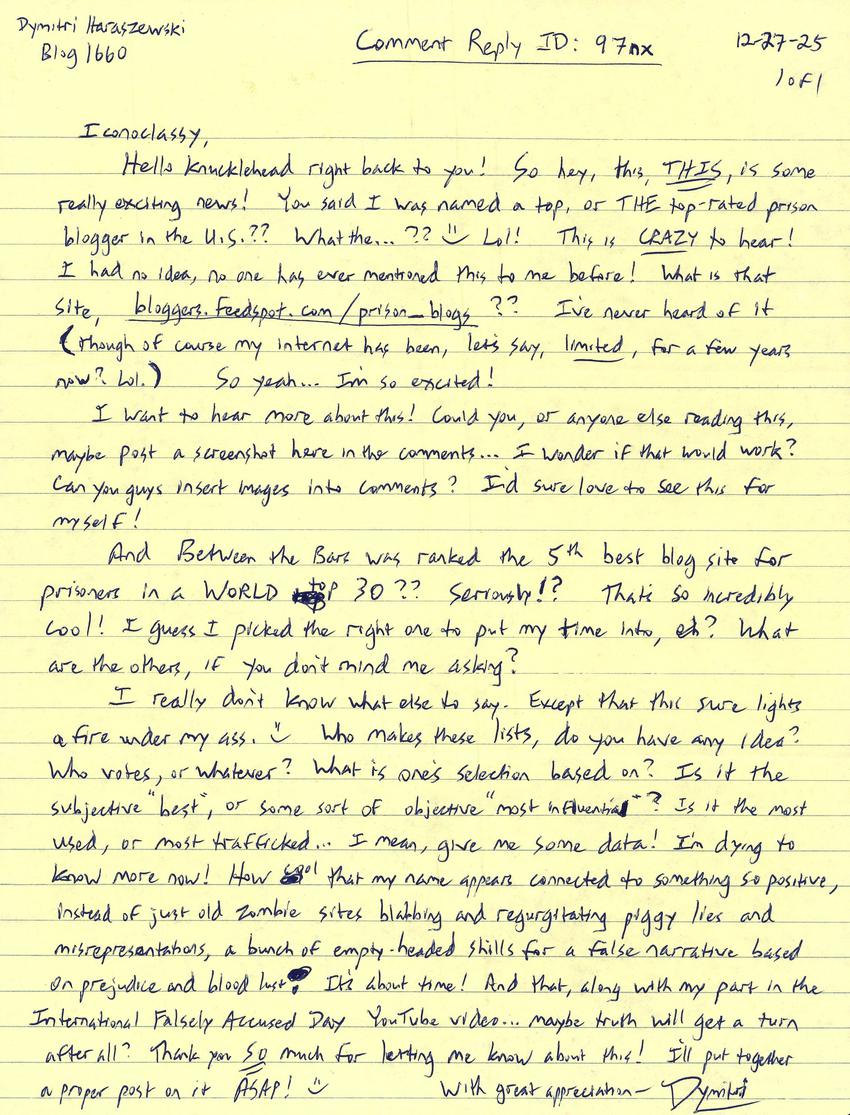 Dymitri Haraszewski
Blog 1660
Comment Reply ID: 97nx
12-27-25
1 of 1
Iconoclassy,
Hello knucklehead right back to you! So hey, this, THIS, is some
really exciting news! You said I was named a top, or THE top-rated prison
blogger in the U.S.?? What the... ?? Lol! This is CRAZY to hear!
I had no idea, no one has ever mentioned this to me before! What is that
site, bloggers.feedspot.com/prison_blogs ?? I've never heard of it
(though of course my internet has been, let's say, limited, for a few years
now? Lol.) So yeah... I'm so excited!
I want to hear more about this! Could you, or anyone else reading this,
maybe post a screenshot here in the comments... I wonder if that would work?
Can you guys insert images into comments? I'd sure love to see this for
myself!
And Between the Bars was ranked the 5th best blog site for
prisoners in a WORLD top 30?? Seriously!? That's so incredibly
cool! I guess I picked the right one to put my time into, eh? What
are the others, if you don't mind me asking?
I really don't know what else to say. Except that this sure lights
a fire under my ass. Who makes these lists, do you have any idea?
Who votes, or whatever? What is one's selection based on? Is it the
subjective "best", or some sort of objective "most influential"? Is it the most
used, or most trafficked... I mean, give me some data! I'm dying to
know more now! How cool that my name appears connected to something so positive,
instead of just old zombie sites blabbing and regurgitating piggy lies and
misrepresentations, a bunch of empty-headed shills for a false narrative based
on prejudice and blood lust. It's about time! And that, along with my part in the
International Falsely Accused Day YouTube video... maybe truth will get a turn
after all? Thank you SO much for letting me know about this! I'll put together
a proper post on it ASAP! With great appreciation— Dymitri